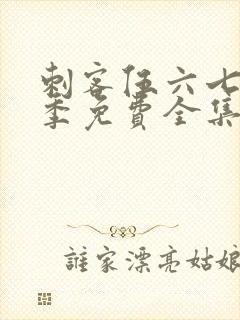 刺客伍六七
季免費全集
誰家漂亮姑娘